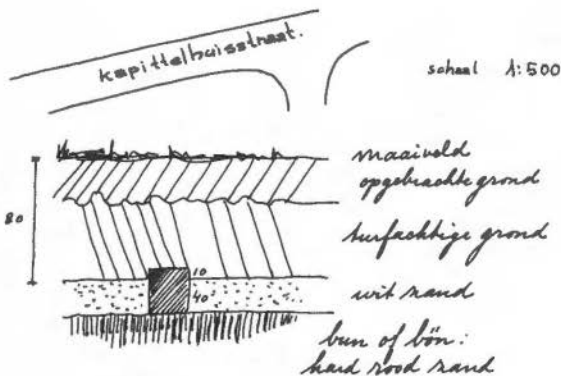 kapittelhuisstraat.
schaal 1:500
maaiveld
opgebrachte grond
80
turfachtige grond
10
40
wit zand
bun of bön:
hard rood zand